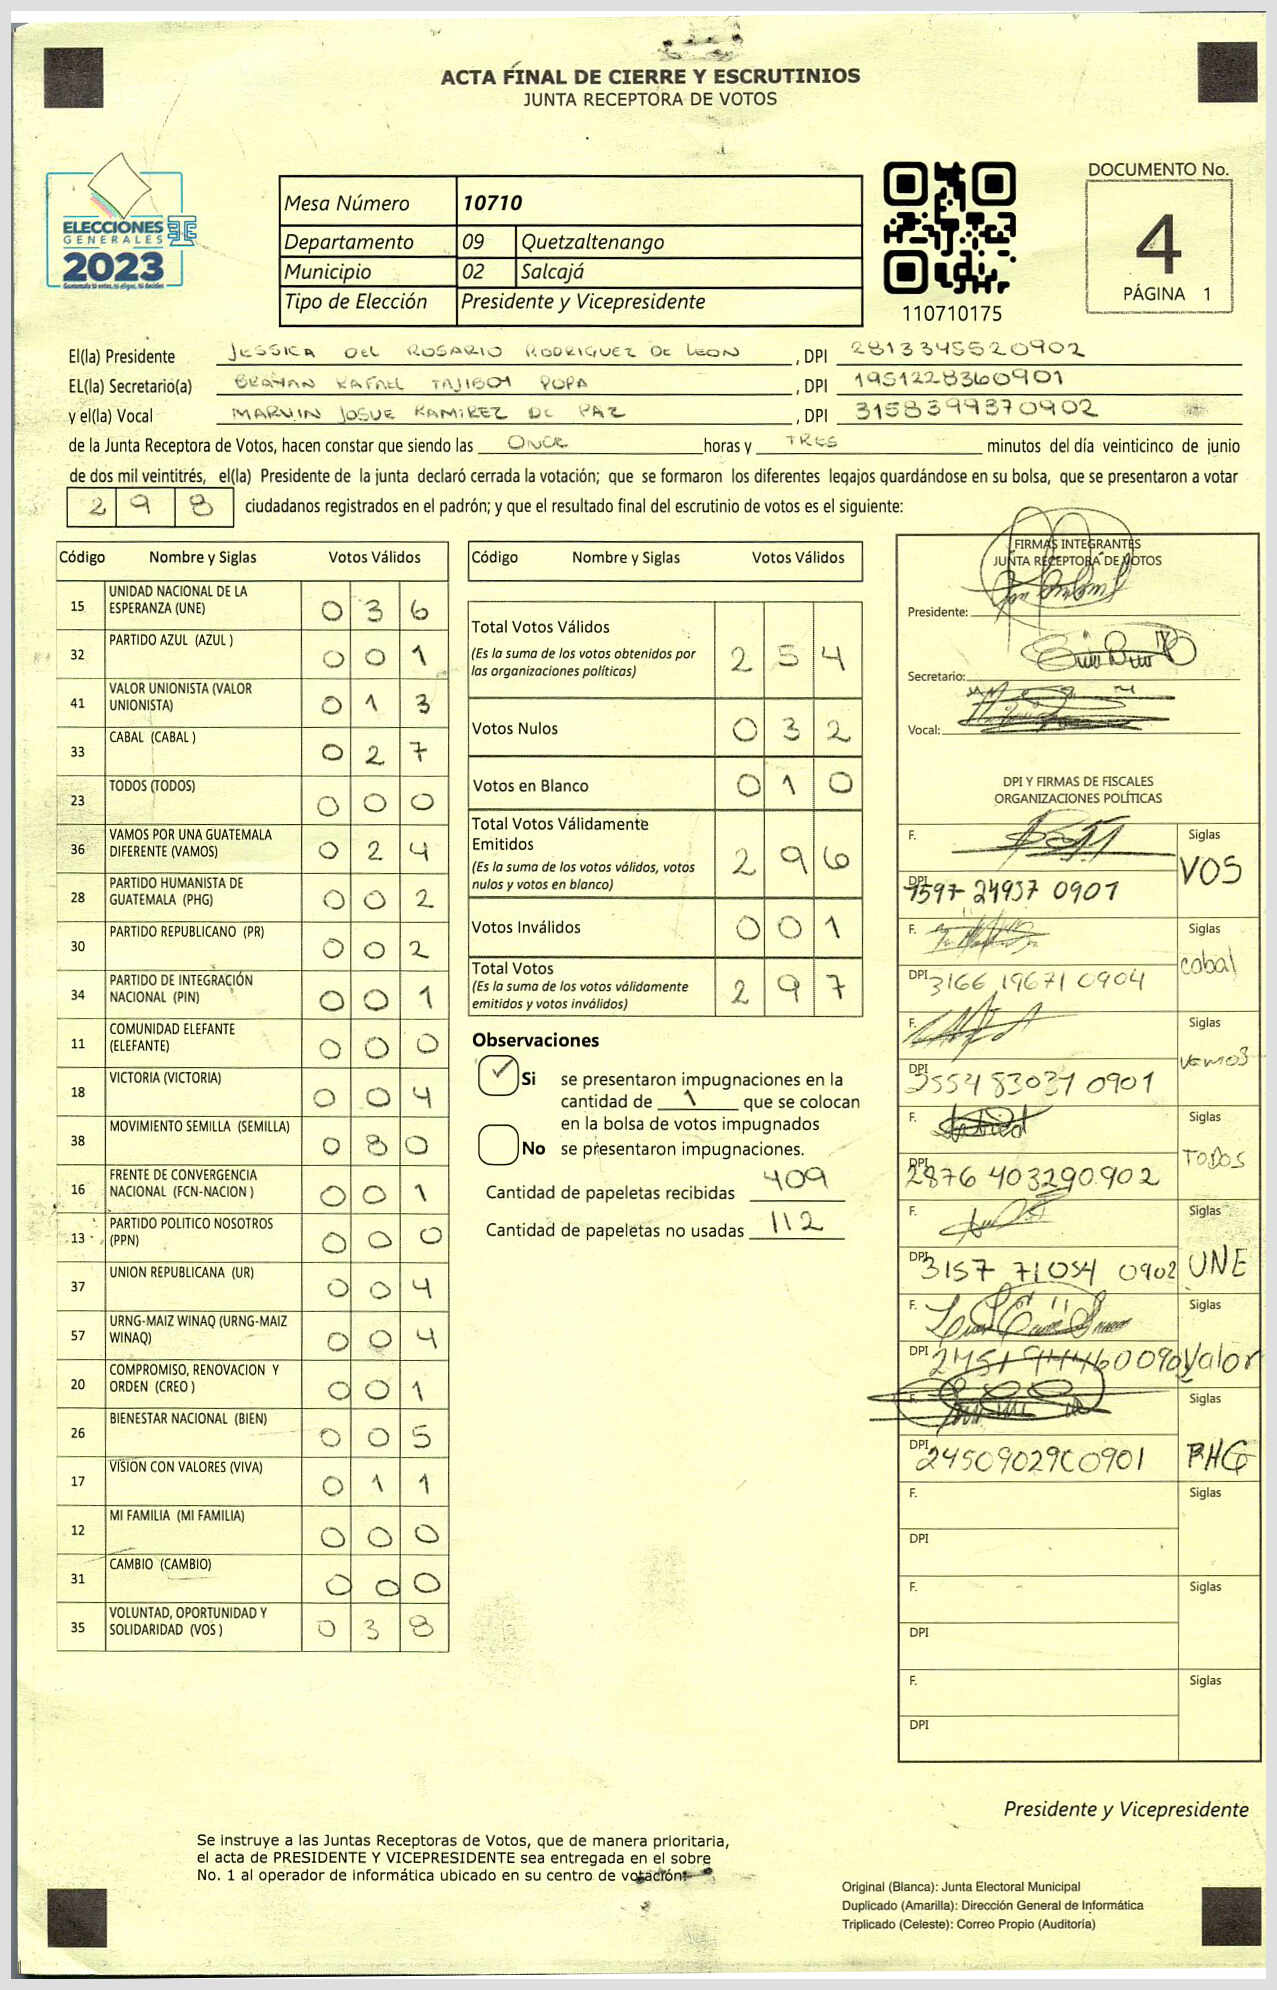 ACTA FINAL DE CIERRE Y ESCRUTINIOS
JUNTA RECEPTORA DE VOTOS
ELECCIONES
GENERALES
2023
Guatemala tú votas, tú eliges, tú decides
Mesa Número 10710
Departamento 09 Quetzaltenango
Municipio 02 Salcajá
Tipo de Elección Presidente y Vicepresidente
110710175
DOCUMENTO No.
4
PÁGINA 1
El(la) Presidente JESSICA DEL ROSARIO RODRIGUEZ DE LEON , DPI 2813345520902
EL(la) Secretario(a) BRAYAN RAFAEL TAJIBOY POPA , DPI 1951228360901
y el(la) Vocal MARVIN JOSUE RAMIREZ DE PAZ , DPI 3158399370902
de la Junta Receptora de Votos, hacen constar que siendo las ONCE horas y TRES minutos del día veinticinco de junio
de dos mil veintitrés, el(la) Presidente de la junta declaró cerrada la votación; que se formaron los diferentes legajos guardándose en su bolsa, que se presentaron a votar
298 ciudadanos registrados en el padrón; y que el resultado final del escrutinio de votos es el siguiente:
Código Nombre y Siglas Votos Válidos
15 UNIDAD NACIONAL DE LA ESPERANZA (UNE) 036
32 PARTIDO AZUL (AZUL ) 001
41 VALOR UNIONISTA (VALOR UNIONISTA) 013
33 CABAL (CABAL ) 027
23 TODOS (TODOS) 000
36 VAMOS POR UNA GUATEMALA DIFERENTE (VAMOS) 024
28 PARTIDO HUMANISTA DE GUATEMALA (PHG) 002
30 PARTIDO REPUBLICANO (PR) 002
34 PARTIDO DE INTEGRACIÓN NACIONAL (PIN) 001
11 COMUNIDAD ELEFANTE (ELEFANTE) 000
18 VICTORIA (VICTORIA) 004
38 MOVIMIENTO SEMILLA (SEMILLA) 080
16 FRENTE DE CONVERGENCIA NACIONAL (FCN-NACION ) 001
13 PARTIDO POLITICO NOSOTROS (PPN) 000
37 UNION REPUBLICANA (UR) 004
57 URNG-MAIZ WINAQ (URNG-MAIZ WINAQ) 004
20 COMPROMISO, RENOVACION Y ORDEN (CREO ) 001
26 BIENESTAR NACIONAL (BIEN) 005
17 VISION CON VALORES (VIVA) 011
12 MI FAMILIA (MI FAMILIA) 000
31 CAMBIO (CAMBIO) 000
35 VOLUNTAD, OPORTUNIDAD Y SOLIDARIDAD (VOS ) 038
Código Nombre y Siglas Votos Válidos
Total Votos Válidos 254
(Es la suma de los votos obtenidos por
las organizaciones políticas)
Votos Nulos 032
Votos en Blanco 010
Total Votos Válidamente
Emitidos 296
(Es la suma de los votos válidos, votos
nulos y votos en blanco)
Votos Inválidos 001
Total Votos 297
(Es la suma de los votos válidamente
emitidos y votos inválidos)
Observaciones
Si se presentaron impugnaciones en la
cantidad de 1 que se colocan
en la bolsa de votos impugnados
No se presentaron impugnaciones.
Cantidad de papeletas recibidas 409
Cantidad de papeletas no usadas 112
FIRMAS INTEGRANTES
JUNTA RECEPTORA DE VOTOS
Presidente:
Secretario:
Vocal:
DPI Y FIRMAS DE FISCALES
ORGANIZACIONES POLÍTICAS
F. Siglas
VOS
DPI 1597 24937 0901
F. Siglas
cabal
DPI 3166 19671 0904
F. Siglas
vamos
DPI 2554 83037 0901
F. Siglas
TODOS
DPI 2876 403290902
F. Siglas
UNE
DPI 3157 71054 0902
F. Siglas
Valor
DPI
F. Siglas
PHG
DPI 2450902900901
F. Siglas
DPI
F. Siglas
DPI
F. Siglas
DPI
Presidente y Vicepresidente
Se instruye a las Juntas Receptoras de Votos, que de manera prioritaria,
el acta de PRESIDENTE Y VICEPRESIDENTE sea entregada en el sobre
No. 1 al operador de informática ubicado en su centro de votación.
Original (Blanca): Junta Electoral Municipal
Duplicado (Amarilla): Dirección General de Informática
Triplicado (Celeste): Correo Propio (Auditoría)